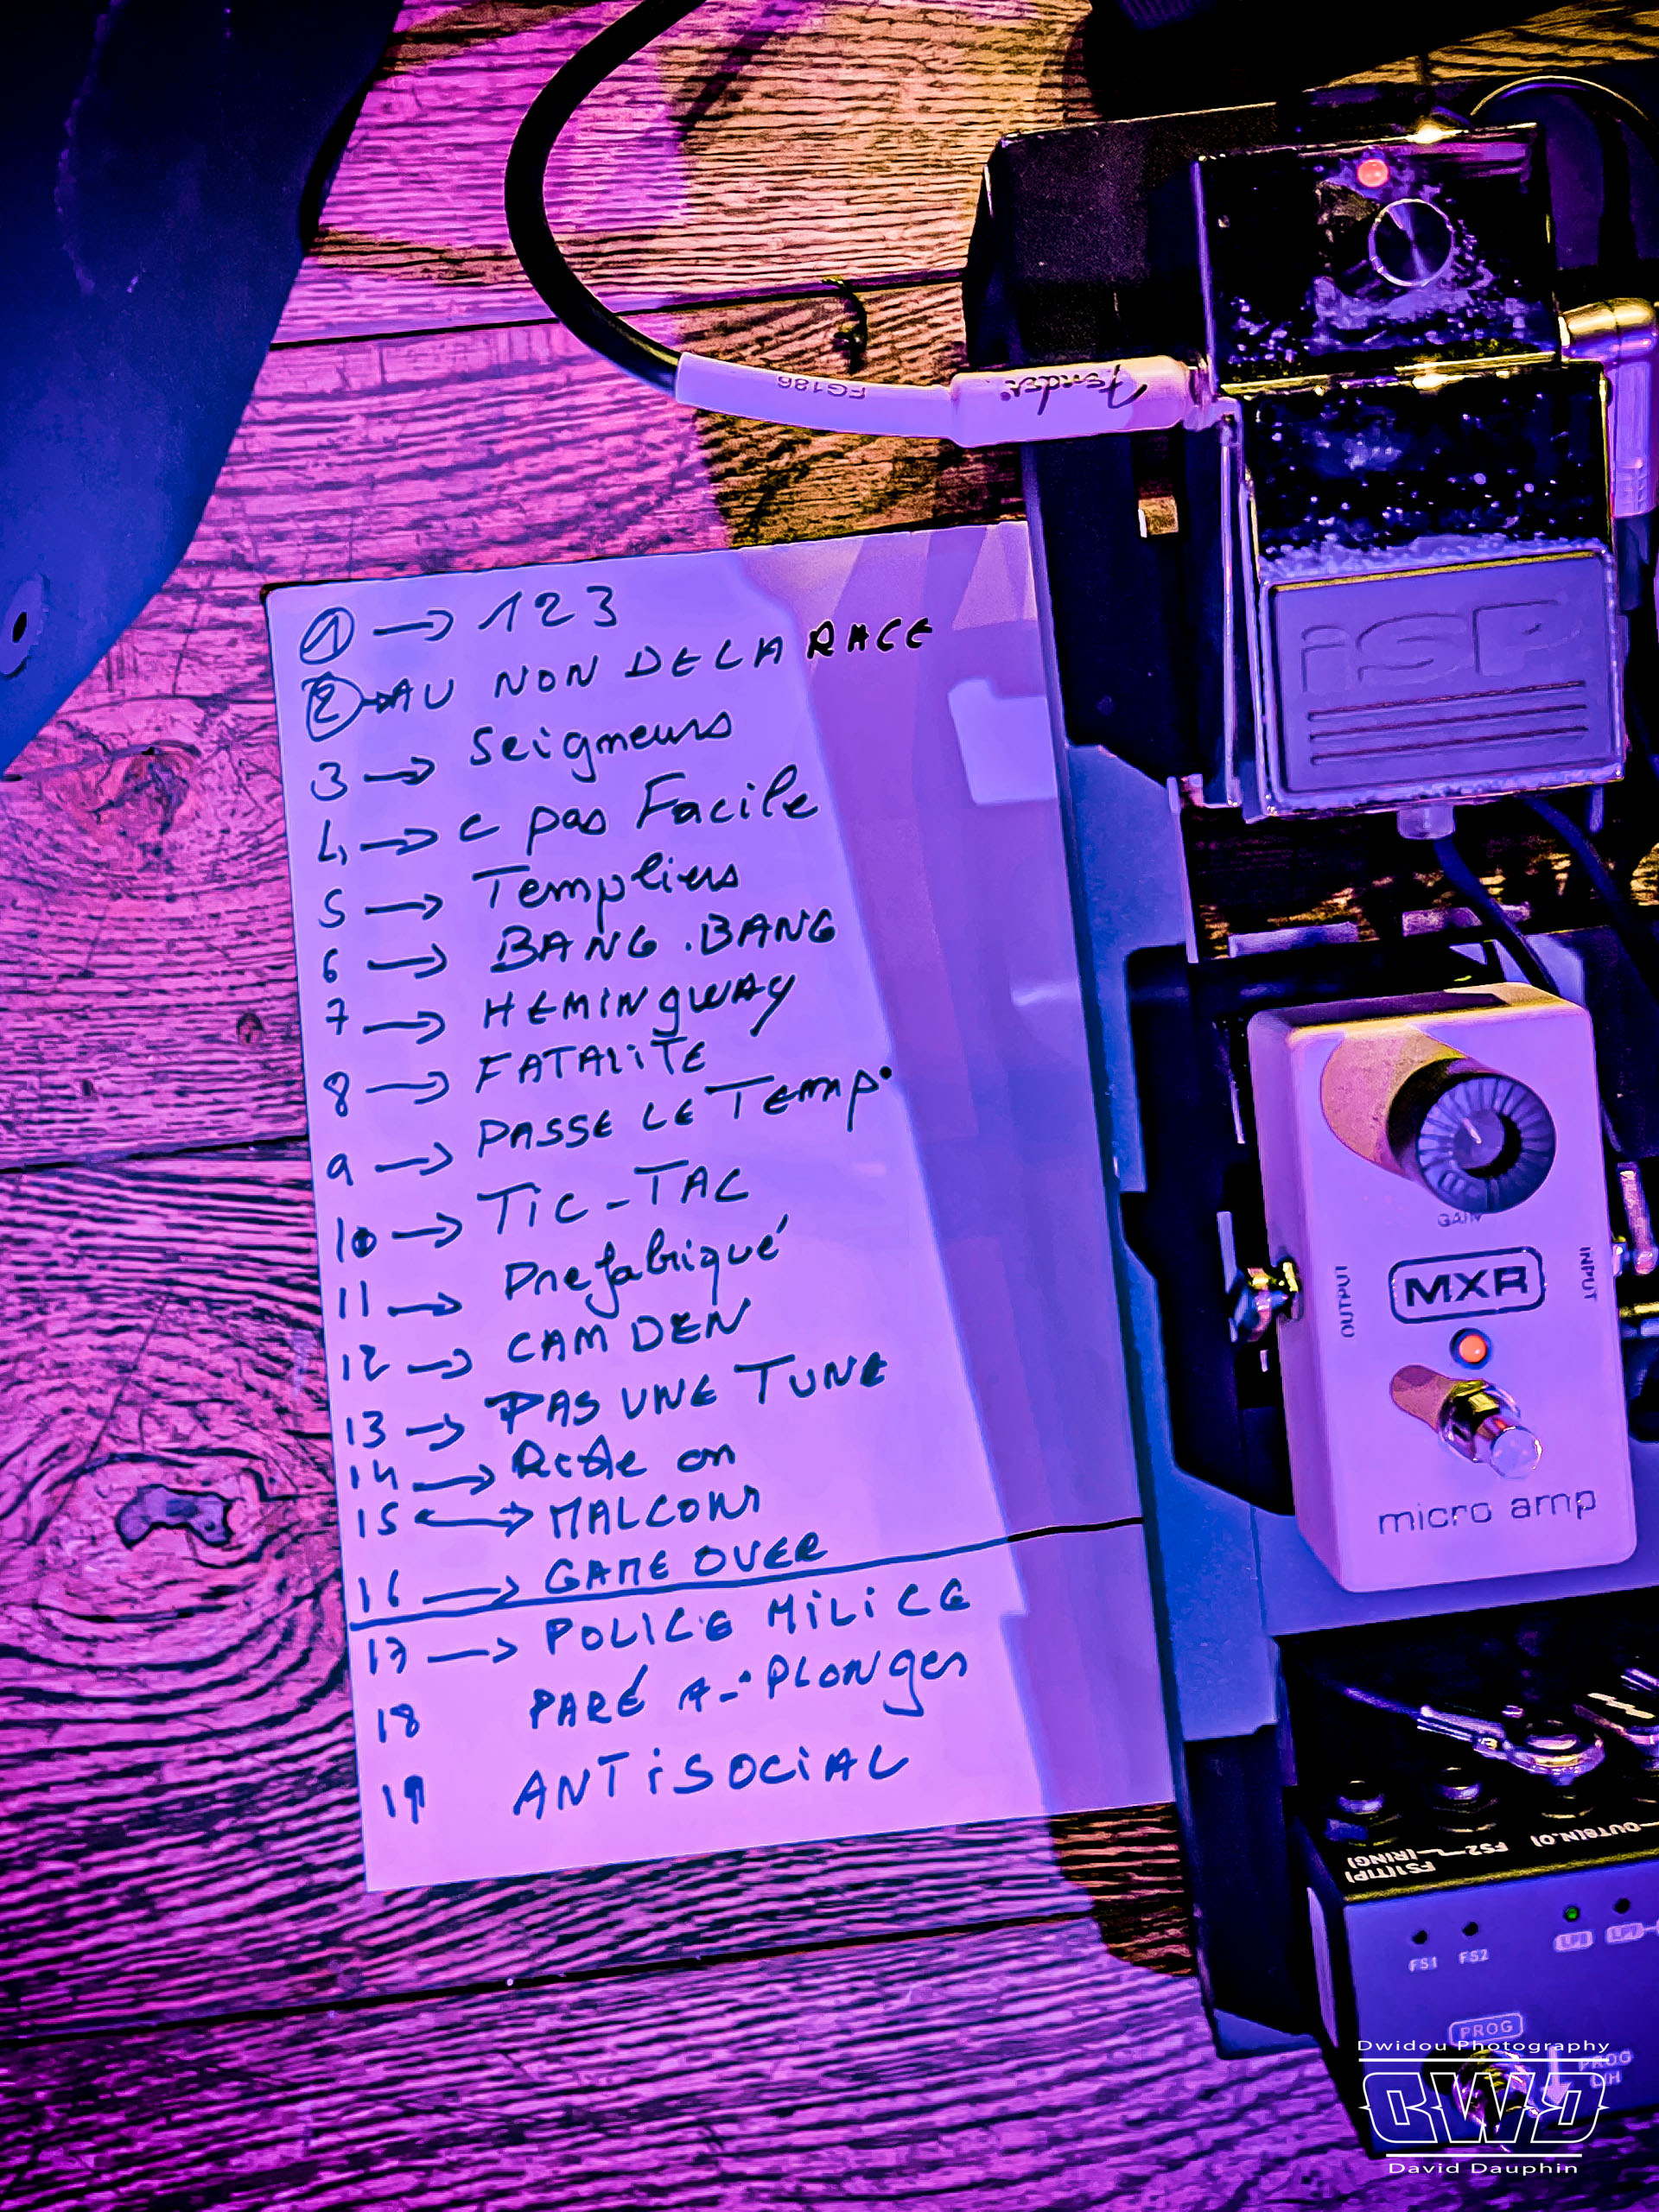 Fender
FG186
iSP
① → 123
② → AU NON DE LA RACE
3 → Seigneurs
4 → c pas Facile
5 → Templiers
6 → BANG.BANG
7 → HEMINgWAY
8 → FATALiTE
9 → PASSE LE TEMP.
10 → TiC-TAC
11 → Prefabriqué
12 → CAMDEN
13 → PAS UNE TUNE
14 → on
15 ↔ MALCOM
16 → GAME OVER
17 → POLICE MiLiCE
18 PARÉ A PLONger
19 ANTiSOCiAL
GAIN
OUTPUT
INPUT
MXR
micro amp
FS1(TIP)
(RING)
FS2
OUTS(N.O)
FS1 FS2 LP1 LP2
PROG
PROG
Dwidou Photography
DWD
David Dauphin